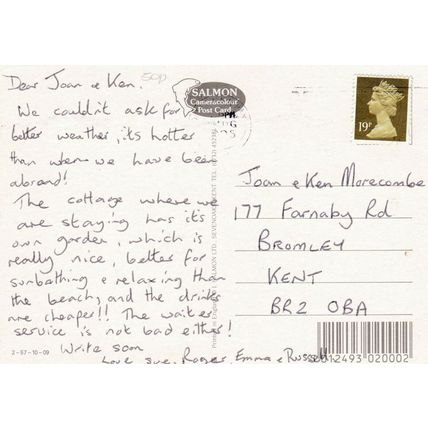 Dear Joan & Ken, 50p
We couldn't ask for
better weather, its hotter
than when we have been
abroad!
The cottage where we
are staying has it's
own garden, which is
really nice, better for
sunbathing & relaxing than
the beach, and the drinks
are cheaper!! The waiter
service is not bad either!
Write soon
Love Sue, Roger, Emma & Russell
2-57-10-09
SALMON
Cameracolour
Post Card
SALMON LTD. SEVENOAKS
19P
Joan & Ken Morecombe
177 Farnaby Rd
BROMLEY
KENT
BR2 0BA
012493 020002